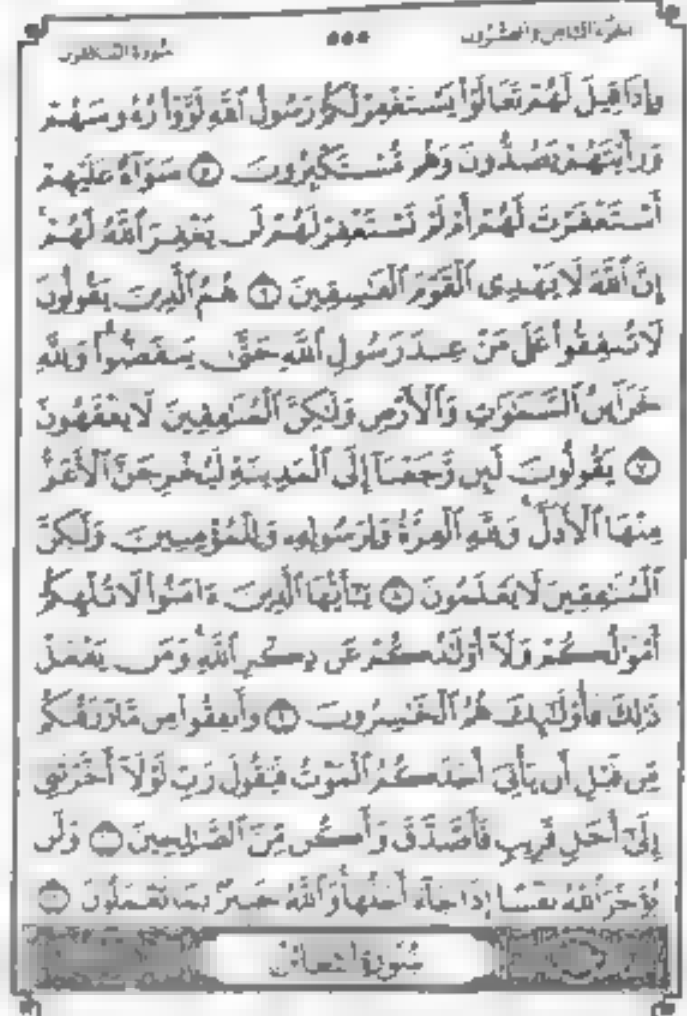 سورة المنافقون الجزء الثامن والعشرون
وَإِذَا قِيلَ لَهُمْ تَعَالَوْا۟ يَسْتَغْفِرْ لَكُمْ رَسُولُ ٱللَّهِ لَوَّوْا۟ رُءُوسَهُمْ
وَرَأَيْتَهُمْ يَصُدُّونَ وَهُم مُّسْتَكْبِرُونَ ٥ سَوَآءٌ عَلَيْهِمْ
أَسْتَغْفَرْتَ لَهُمْ أَمْ لَمْ تَسْتَغْفِرْ لَهُمْ لَن يَغْفِرَ ٱللَّهُ لَهُمْ ۚ
إِنَّ ٱللَّهَ لَا يَهْدِى ٱلْقَوْمَ ٱلْفَـٰسِقِينَ ٦ هُمُ ٱلَّذِينَ يَقُولُونَ
لَا تُنفِقُوا۟ عَلَىٰ مَنْ عِندَ رَسُولِ ٱللَّهِ حَتَّىٰ يَنفَضُّوا۟ ۗ وَلِلَّهِ
خَزَآئِنُ ٱلسَّمَـٰوَٰتِ وَٱلْأَرْضِ وَلَـٰكِنَّ ٱلْمُنَـٰفِقِينَ لَا يَفْقَهُونَ
٧ يَقُولُونَ لَئِن رَّجَعْنَآ إِلَى ٱلْمَدِينَةِ لَيُخْرِجَنَّ ٱلْأَعَزُّ
مِنْهَا ٱلْأَذَلَّ ۚ وَلِلَّهِ ٱلْعِزَّةُ وَلِرَسُولِهِۦ وَلِلْمُؤْمِنِينَ وَلَـٰكِنَّ
ٱلْمُنَـٰفِقِينَ لَا يَعْلَمُونَ ٨ يَـٰٓأَيُّهَا ٱلَّذِينَ ءَامَنُوا۟ لَا تُلْهِكُمْ
أَمْوَٰلُكُمْ وَلَآ أَوْلَـٰدُكُمْ عَن ذِكْرِ ٱللَّهِ ۚ وَمَن يَفْعَلْ
ذَٰلِكَ فَأُو۟لَـٰٓئِكَ هُمُ ٱلْخَـٰسِرُونَ ٩ وَأَنفِقُوا۟ مِن مَّا رَزَقْنَـٰكُم
مِّن قَبْلِ أَن يَأْتِىَ أَحَدَكُمُ ٱلْمَوْتُ فَيَقُولَ رَبِّ لَوْلَآ أَخَّرْتَنِىٓ
إِلَىٰٓ أَجَلٍ قَرِيبٍ فَأَصَّدَّقَ وَأَكُن مِّنَ ٱلصَّـٰلِحِينَ ١٠ وَلَن
يُؤَخِّرَ ٱللَّهُ نَفْسًا إِذَا جَآءَ أَجَلُهَا ۚ وَٱللَّهُ خَبِيرٌۢ بِمَا تَعْمَلُونَ ١١
سُورَةُ التَّغَابُنِ